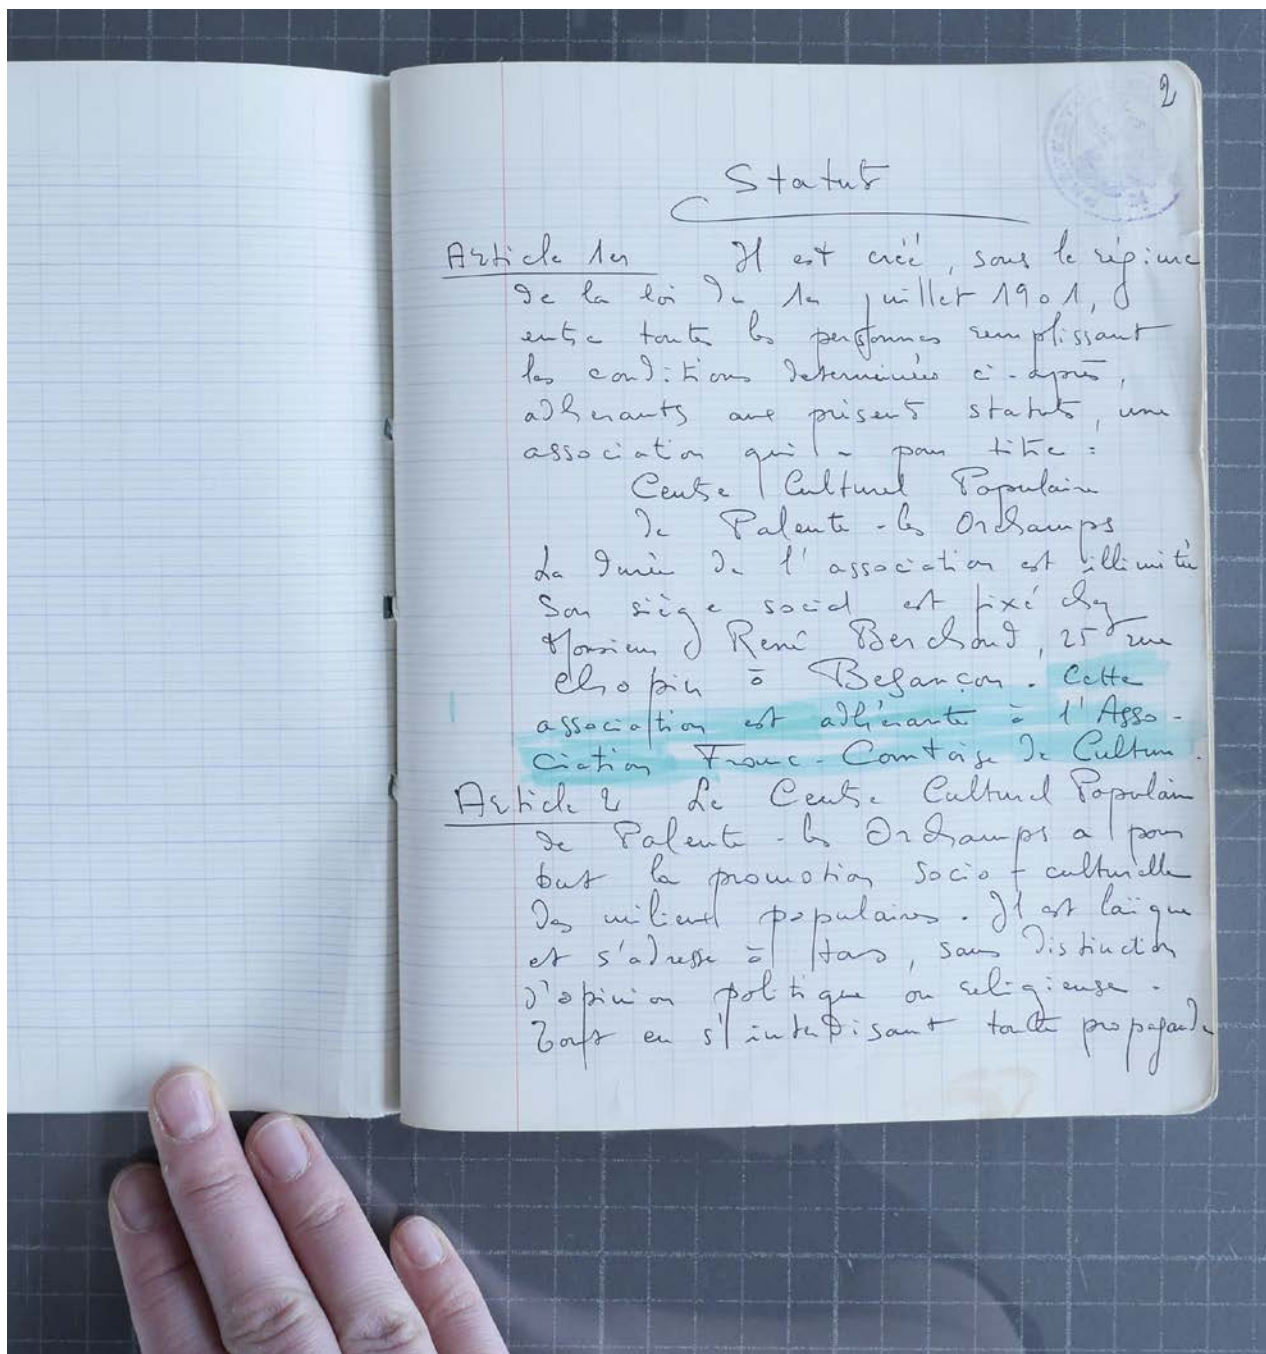 2
Statuts
Article 1er Il est créé, sous le régime
de la loi du 1er juillet 1901,
entre toutes les personnes remplissant
les conditions determinées ci-après,
adhérants aux présents statuts, une
association qui a pour titre :
Centre Culturel Populaire
de Palente-les Orchamps
La durée de l'association est illimitée
Son siège social est fixé chez
Monsieur René Berchoud, 25 rue
Chopin à Besançon. Cette
association est adhérante à l'Asso-
ciation Franc-Comtoise de Culture.
Article 2 Le Centre Culturel Populaire
de Palente-les Orchamps a pour
but la promotion socio-culturelle
des milieux populaires. Il est laïque
et s'adresse à tous, sans distinction
d'opinion politique ou religieuse.
Tout en s'interdisant toute propagande